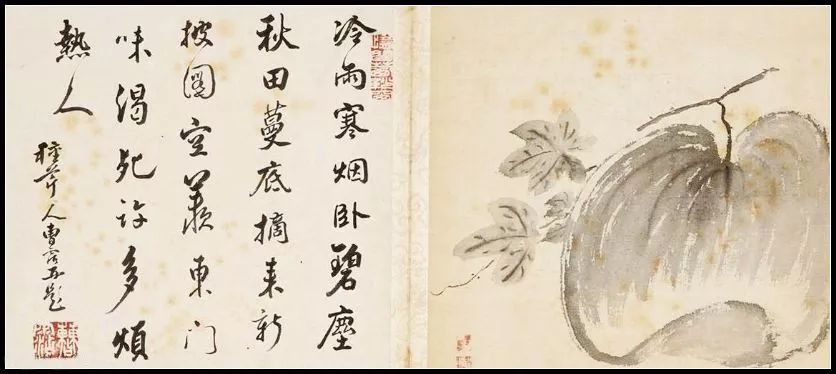 冷雨寒烟卧碧塵
秋田蔓底摘来新
披圖空羡東门
味渴死许多煩
熱人
種芹人曹霑并題